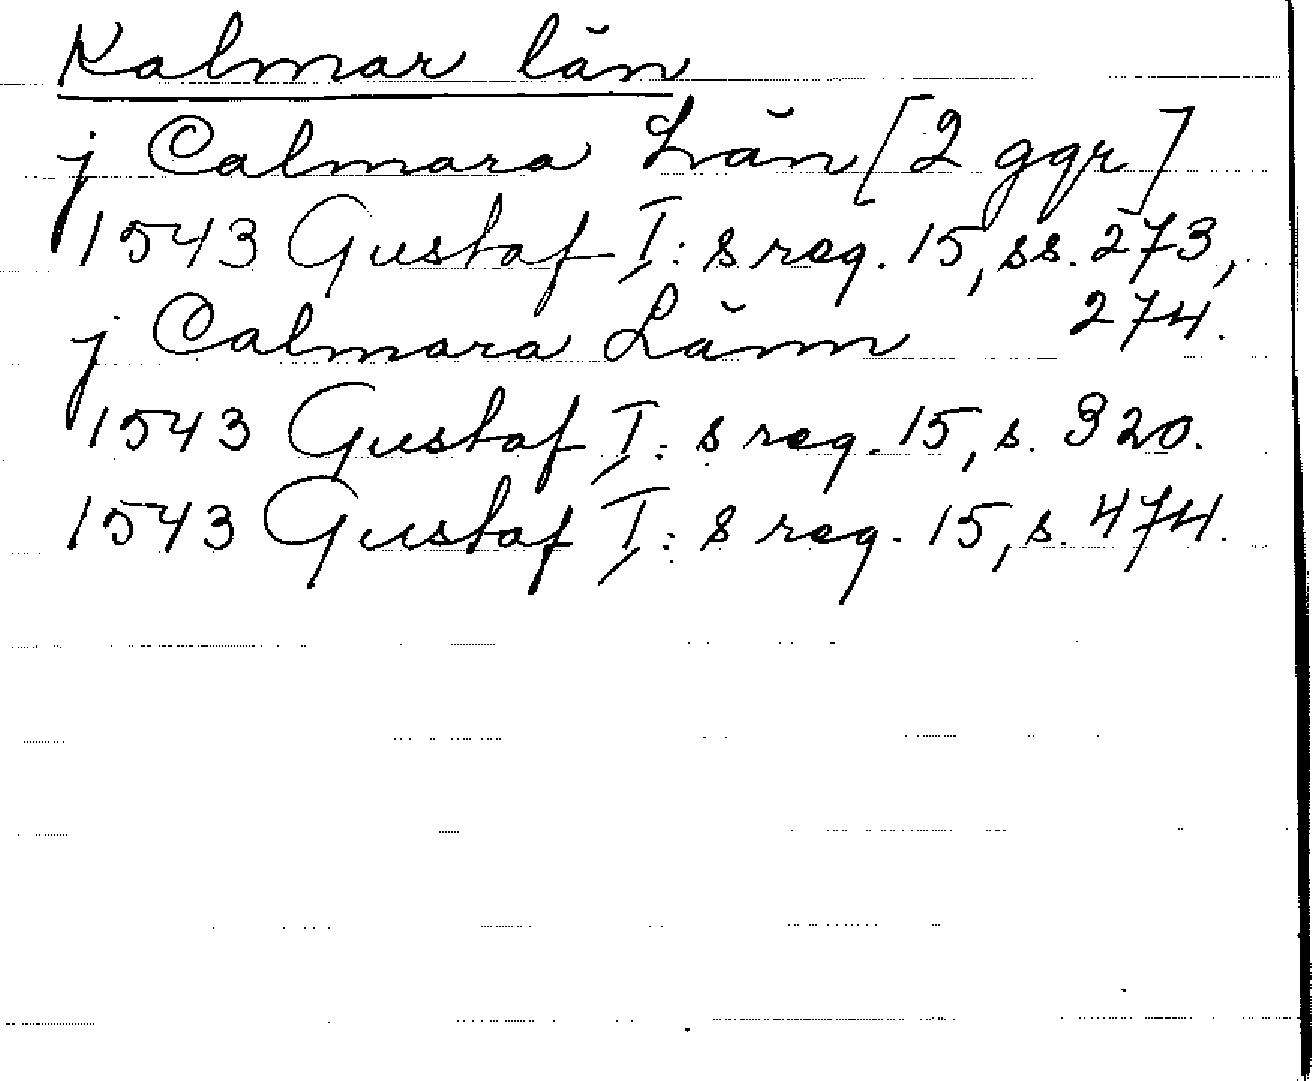 Kalmar län
j Calmara Län [2 ggr]
1543 Gustaf I:s reg. 15, ss. 273,
274.
j Calmara Länn
1543 Gustaf I:s reg. 15, s. 320.
1543 Gustaf I:s reg. 15, s. 474.